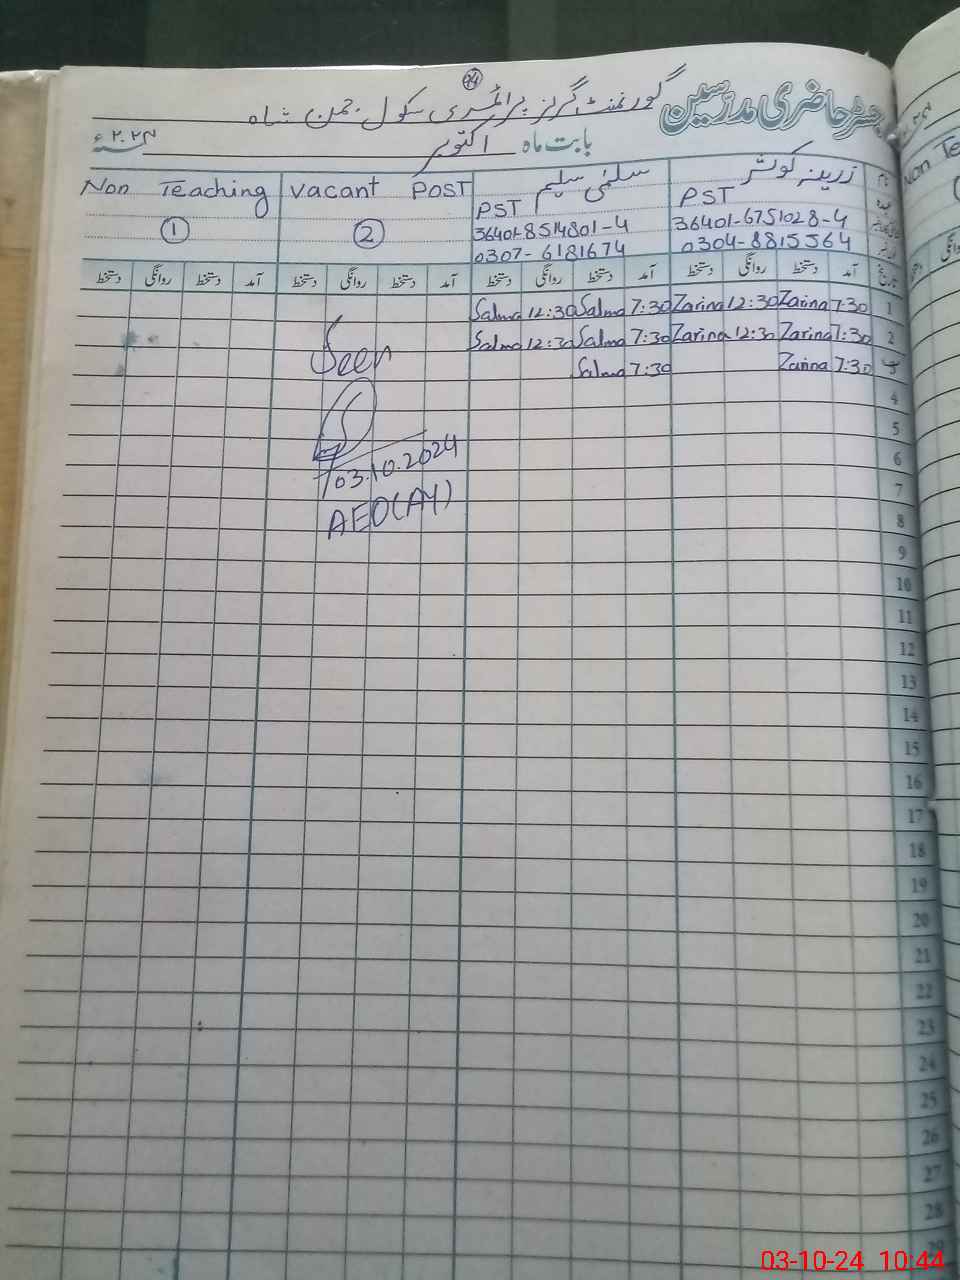 24
رجسٹر حاضری مدرسین گورنمنٹ گرلز پرائمری سکول جمن شاہ
بابت ماہ اکتوبر ۲۰۲۴ء
زرینہ کوثر سلمٰی سلیم Vacant Post Non Teaching
PST PST
36401-6751028-4 36401-8514801-4 2 1
0304-8815564 0307-6181674
تاریخ آمد دستخط روانگی دستخط آمد دستخط روانگی دستخط آمد دستخط روانگی دستخط آمد دستخط روانگی دستخط
1 7:30 Zarina 12:30 Zarina 7:30 Salma 12:30 Salma
2 7:30 Zarina 12:30 Zarina 7:30 Salma 12:30 Salma
7:30 Zarina 7:30 Salma
Seen
4
5
6
03.10.2024
7
AEO(AY)
8
9
10
11
12
13
14
15
16
17
18
19
20
21
22
23
24
25
26
27
28
29
03-10-24 10:44